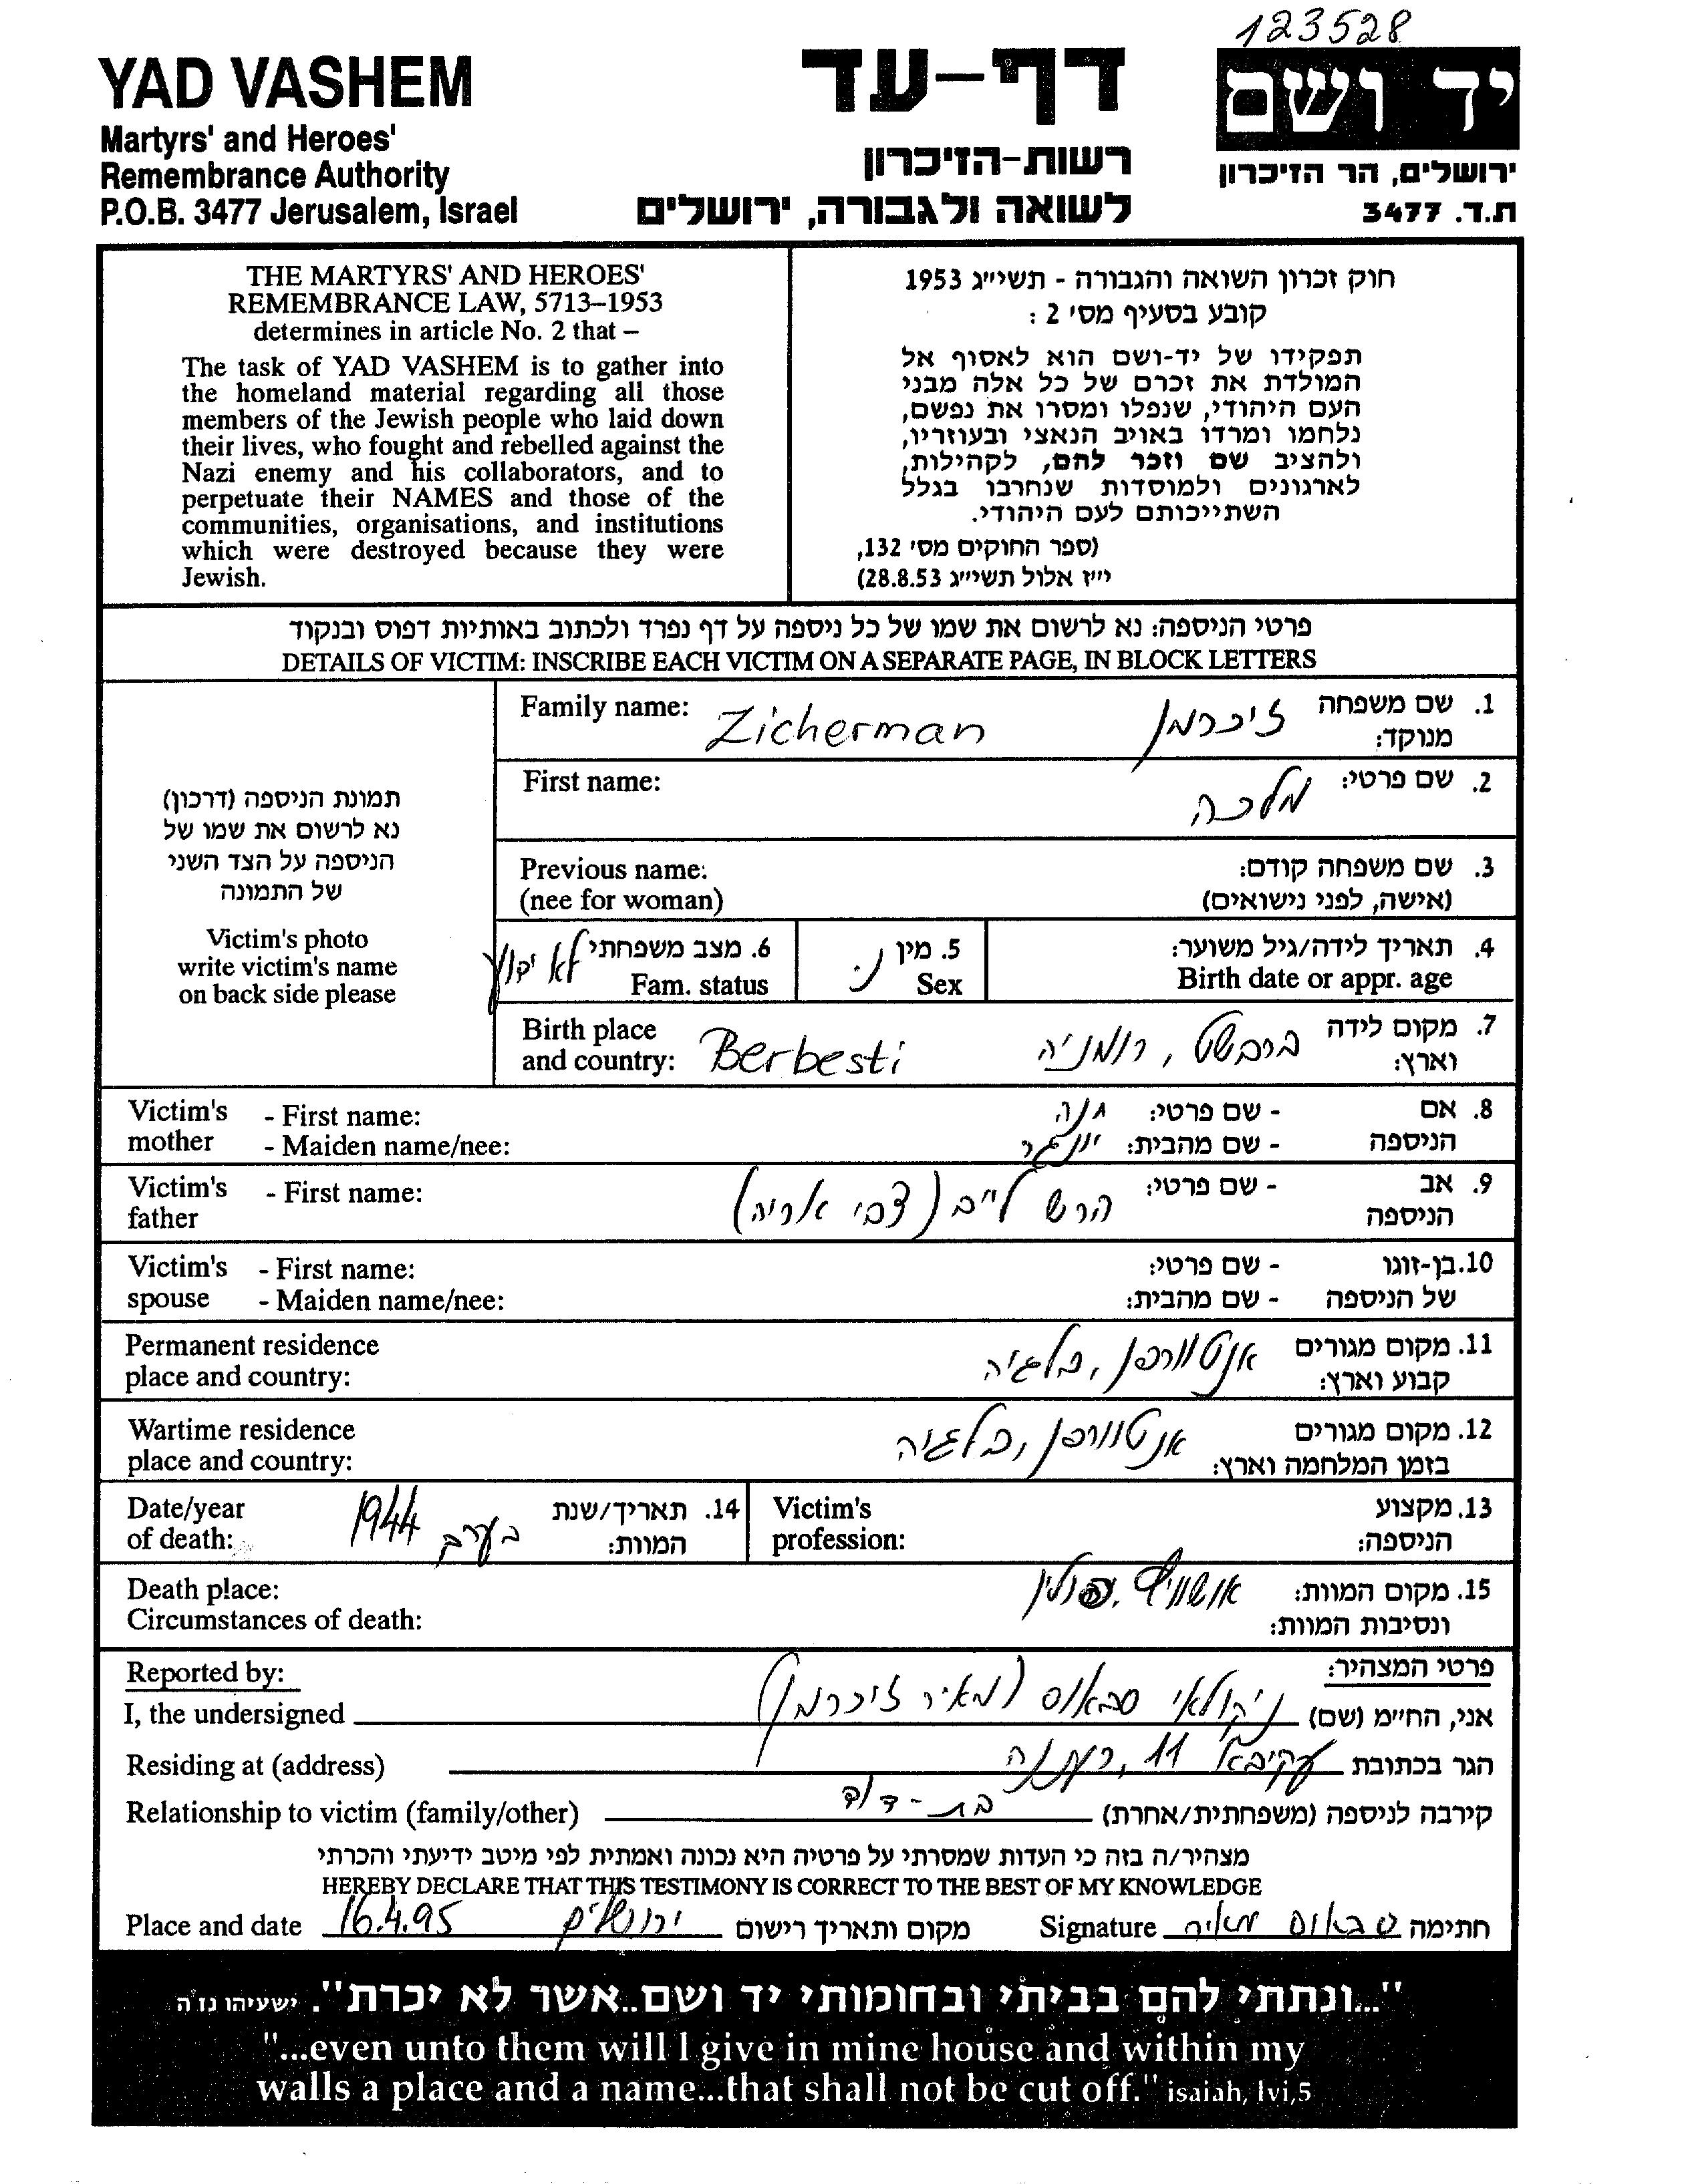 123528
YAD VASHEM
Martyrs' and Heroes'
Remembrance Authority
P.O.B. 3477 Jerusalem, Israel
דף-עד
רשות-הזיכרון
לשואה ולגבורה, ירושלים
יד ושם
ירושלים, הר הזיכרון
ת.ד. 3477
THE MARTYRS' AND HEROES'
REMEMBRANCE LAW, 5713–1953
determines in article No. 2 that –
The task of YAD VASHEM is to gather into
the homeland material regarding all those
members of the Jewish people who laid down
their lives, who fought and rebelled against the
Nazi enemy and his collaborators, and to
perpetuate their NAMES and those of the
communities, organisations, and institutions
which were destroyed because they were
Jewish.
חוק זכרון השואה והגבורה - תשי״ג 1953
קובע בסעיף מס׳ 2 :
תפקידו של יד-ושם הוא לאסוף אל
המולדת את זכרם של כל אלה מבני
העם היהודי, שנפלו ומסרו את נפשם,
נלחמו ומרדו באויב הנאצי ובעוזריו,
ולהציב שם וזכר להם, לקהילות,
לארגונים ולמוסדות שנחרבו בגלל
השתייכותם לעם היהודי.
(ספר החוקים מס׳ 132,
י״ז אלול תשי״ג 28.8.53)
פרטי הניספה: נא לרשום את שמו של כל ניספה על דף נפרד ולכתוב באותיות דפוס ובנקוד
DETAILS OF VICTIM: INSCRIBE EACH VICTIM ON A SEPARATE PAGE, IN BLOCK LETTERS
תמונת הניספה (דרכון)
נא לרשום את שמו של
הניספה על הצד השני
של התמונה
Victim's photo
write victim's name
on back side please
Family name: Zicherman זיכרמן 1. שם משפחה
מנוקד:
First name: מלכה 2. שם פרטי:
Previous name: 3. שם משפחה קודם:
(nee for woman) (אישה, לפני נישואים)
4. תאריך לידה/גיל משוער:
Birth date or appr. age
5. מין נ.
Sex
6. מצב משפחתי לא ידוע
Fam. status
Birth place 7. מקום לידה
and country: Berbesti ברבשט, רומניה וארץ:
Victim's - First name: חנה - שם פרטי: 8. אם
mother - Maiden name/nee: יונגר - שם מהבית: הניספה
Victim's - First name: הרש לייב (צבי אריה) - שם פרטי: 9. אב
father הניספה
Victim's - First name: - שם פרטי: 10. בן-זוגו
spouse - Maiden name/nee: - שם מהבית: של הניספה
Permanent residence אנטוורפן, בלגיה 11. מקום מגורים
place and country: קבוע וארץ:
Wartime residence אנטוורפן, בלגיה 12. מקום מגורים
place and country: בזמן המלחמה וארץ:
Date/year 1944 בערב 14. תאריך/שנת
of death: המוות:
Victim's 13. מקצוע
profession: הניספה:
Death place: אושוויץ, פולין 15. מקום המוות:
Circumstances of death: ונסיבות המוות:
Reported by: פרטי המצהיר:
I, the undersigned ניקולאי סבאוס (מאיר זיכרמן) אני, החי״מ (שם)
Residing at (address) עקיבא 11, רעננה הגר בכתובת
Relationship to victim (family/other) בת-דוד קירבה לניספה (משפחתית/אחרת)
מצהיר/ה בזה כי העדות שמסרתי על פרטיה היא נכונה ואמתית לפי מיטב ידיעתי והכרתי
HEREBY DECLARE THAT THIS TESTIMONY IS CORRECT TO THE BEST OF MY KNOWLEDGE
Place and date 16.4.95 ירושלים מקום ותאריך רישום Signature סבאוס מאיר חתימה
"...ונתתי להם בביתי ובחומותי יד ושם..אשר לא יכרת". ישעיהו נו׳ה
"...even unto them will I give in mine house and within my
walls a place and a name...that shall not be cut off." isaiah, lvi,5